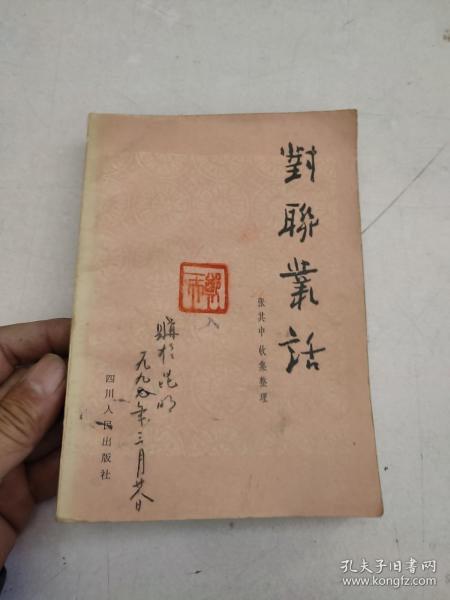 對聯叢話
张其中 收集整理
購於昆明
一九九〇年三月廿日
四川人民出版社
孔夫子旧书网
www.kongfz.com